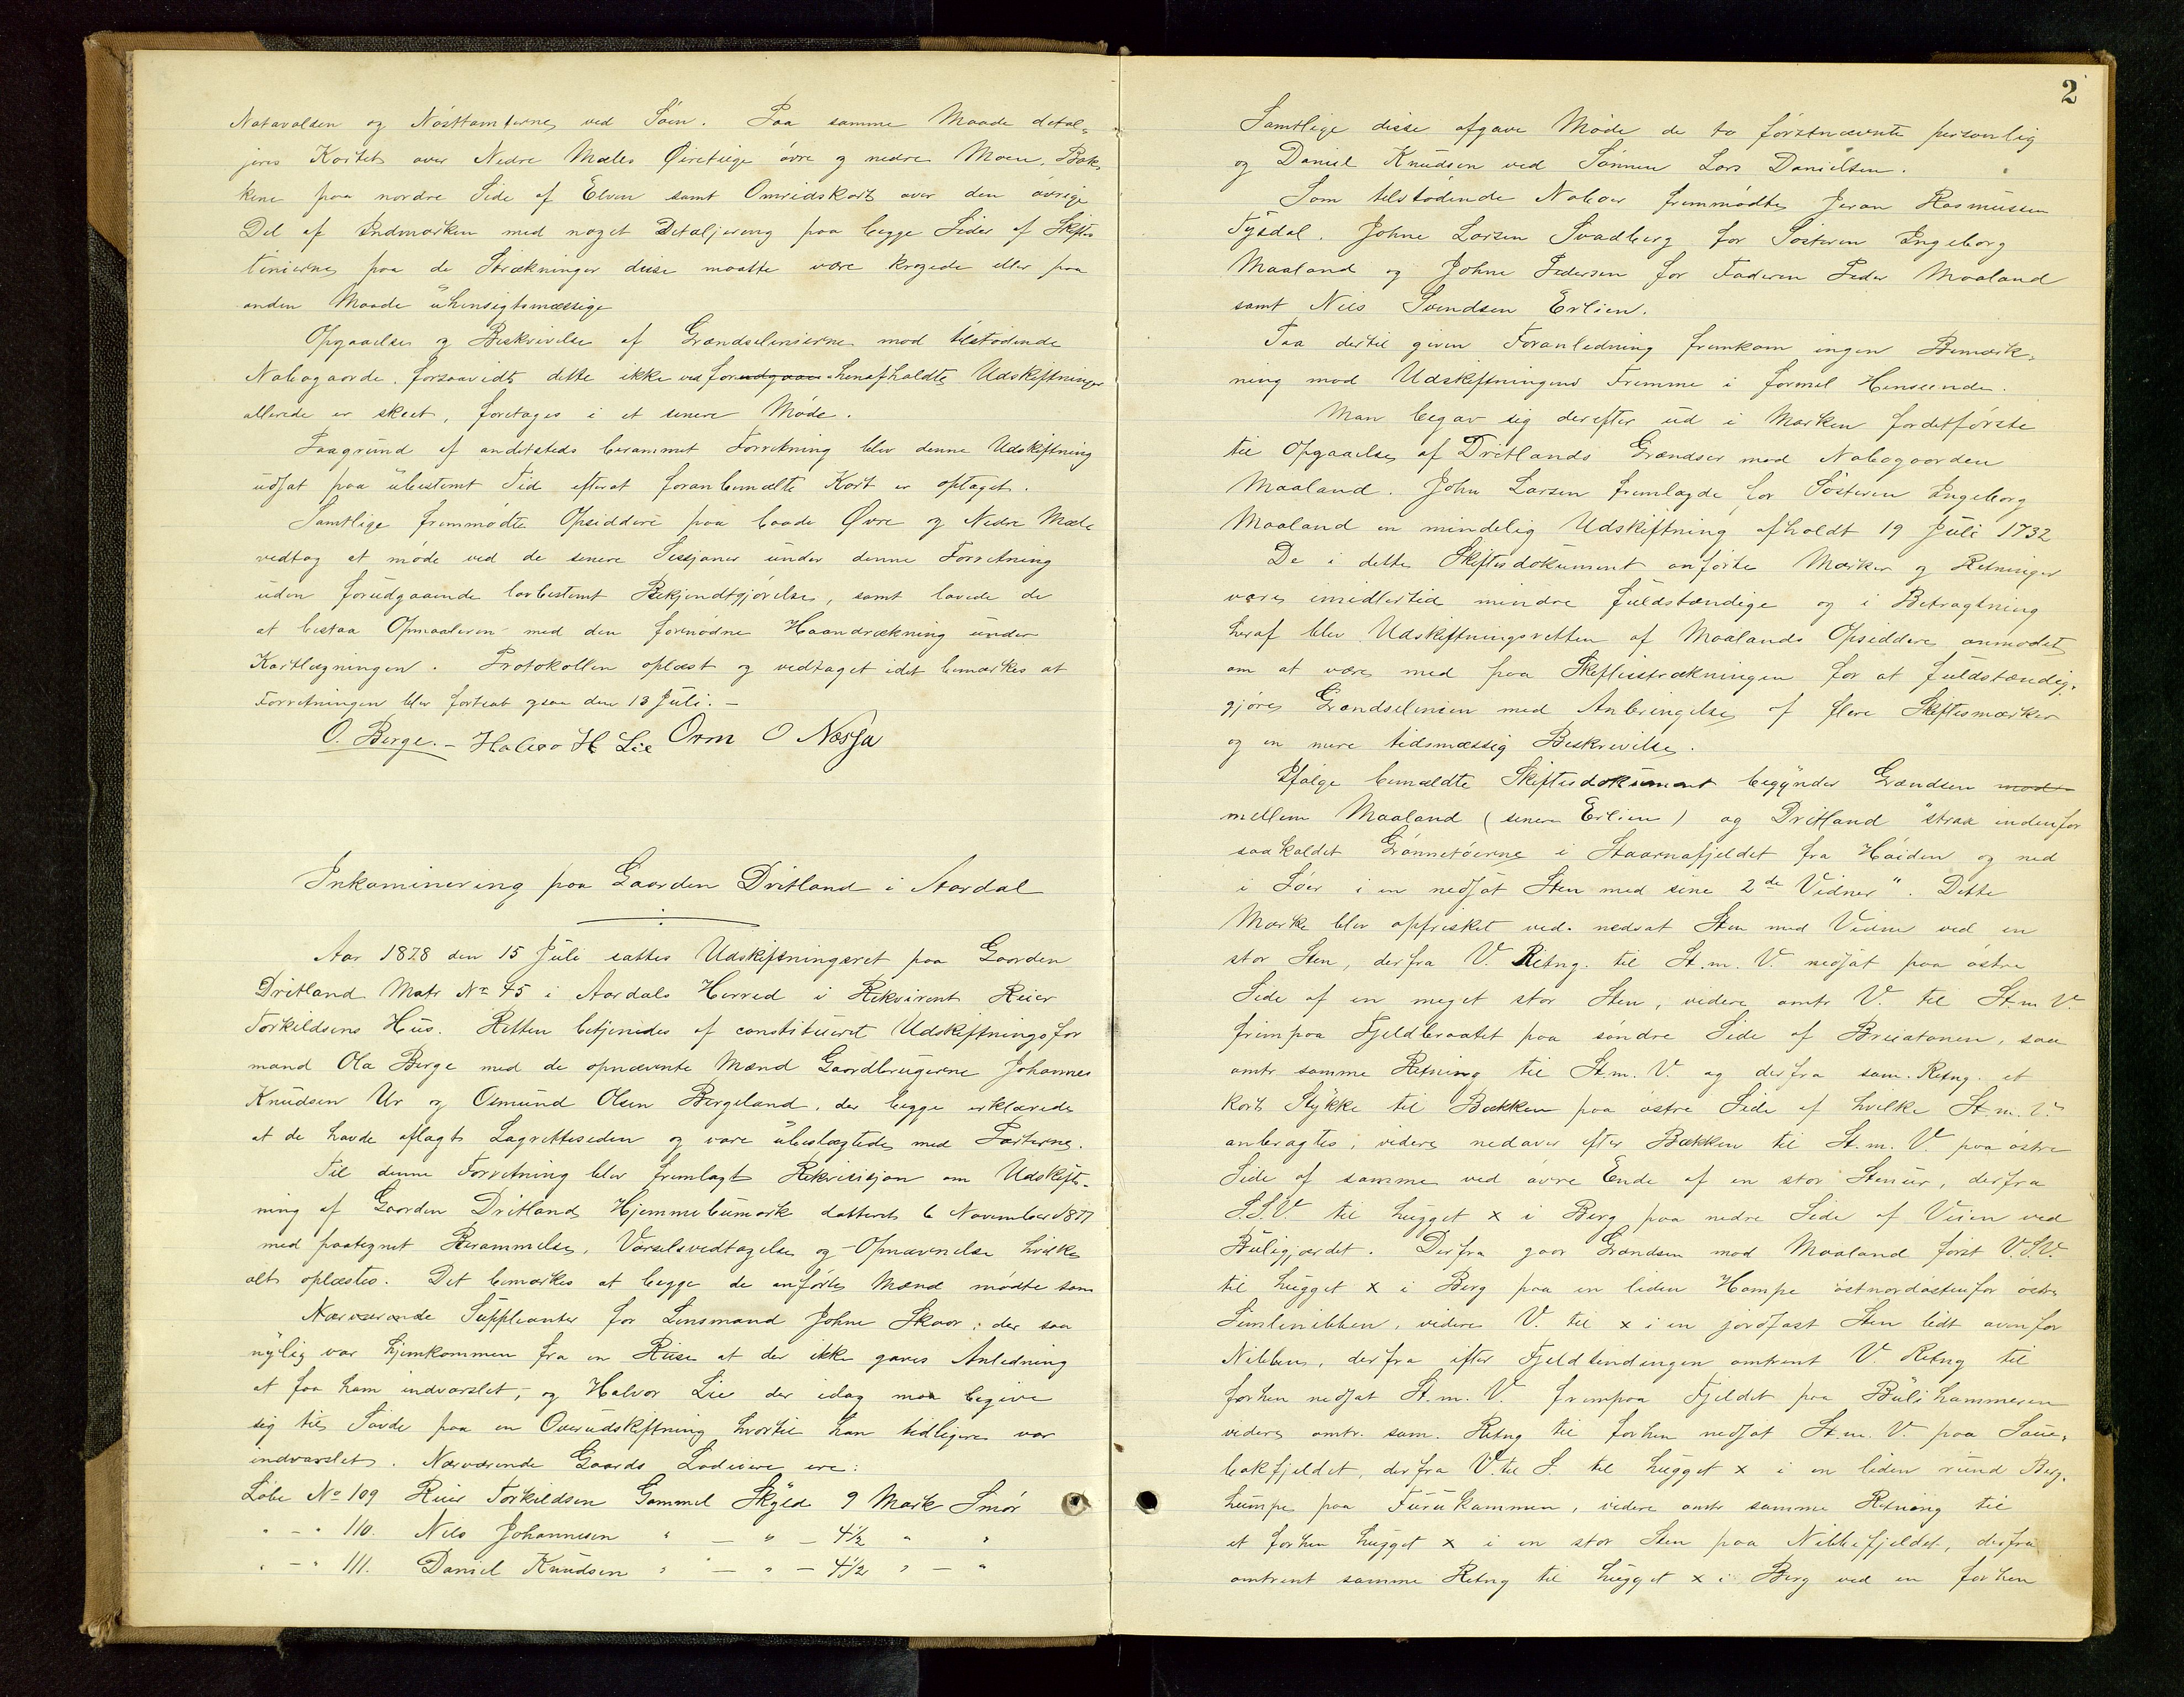 Natavalden og Nösttomterne ved Söen. Paa samme Maade detal-
jeres Kortet over Nedre Mæles Øireteige övre og nedre Moen, Bak-
kene paa nordre Side af Elven samt Omridskort over den övrige
Del af Indmarken med noget Detaljering paa begge Sider af Skifte
linierne paa de Strækninger disse maatte være krogede eller paa
anden Maade uhensigtsmæssige
Opgaaelse og Beskrivelse af Grændselinierne mod tilstödende
Nabogaarde, forsaavidt dette ikke ved forudgaaen henafholdte Udskiftninger
allerede er skeet, foretages i et senere Möde.
Paagrund af andetsteds berammet Forretning blev denne Udskiftning
udsat paa ubestemt Tid efterat foranbemælte Kort er optaget.
Samtlige fremmödte Opsiddere paa baade Øvre og Nedre Mæle
vedtog at möde ved de senere Sessjoner under denne Forretning
uden forudgaaende lovbestemt Bekjendtgjörelse, samt lovede de
at bistaa Opmaaleren med den fornödne Haandrækning under
Kartlægningen. Protokollen oplæst og vedtaget idet bemærkes at
Forretningen blev fortsat ogsaa den 13 Juli. -
O. Berge. - Halvor H Lie Orm O Nessa
Inkaminering paa Gaarden Dritland i Aardal
Aar 1878 den 15 Juli sattes Udskiftningsret paa Gaarden
Dritland Matr No 45 i Aardals Herred i Rekvirent Reier
Torkildsens Hus. Retten betjenedes af constitueret Udskiftningsfor
mand Ola Berge med de opnævnte Mænd Gaardbrugerne Johannes
Knudsen Ur og Osmund Olsen Bergeland, der begge erklærede
at de havde aflagt Lagretteseden og være ubeslægtede med Parterne.
Til denne Forretning blev fremlagt Rekvisisjon om Udskift-
ning af Gaarden Dritlands Hjemmebumark datteret 6 November 1877
med paategnet Berammelse, Varselsvedtagelse og Opnævnelse hvilke
alt oplæstes. Det bemærkes at begge de anförte Mænd mödte som
Nærværende Suppleanter for Lensmand Johne Skaar; der saa
nylig var hjemkommen fra en Reise at der ikke gaves Anledning
at faa ham indvarslet, og Halvor Lie der idag maa begive
sig til Sövde paa en Overudskiftning hvortil han tidligere var
indvarslet. Nærværende Gaards Lodeiere ere:
Löbe No 109 Reier Torkildsen Gammel Skyld 9 Mark Smör
" - " 110. Nils Johannesen " — " — 4½ " "
" - " 111. Daniel Knudsen " " — " — 4½ " — "
2
Samtlige disse afgave Möde de to förstnævnte personlig
og Daniel Knudsen ved Sönnen Lars Danielsen.
Som tilstödende Naboer fremmödte Jeran Rasmussen
Tysdal. Johne Larsen Svadberg for Sösteren Ingeborg
Maaland og Johne Pedersen for Faderen Peder Maaland
samt Nils Svendsen Erlien.
Paa dertil given Foranledning fremkom ingen Bemærk-
ning mod Udskiftningens Fremme i formel Henseende.
Man begav sig derefter ud i Marken fordetförste
til Opgaaelse af Dritlands Grændser mod Nabogaarden
Maaland. John Larsen fremlagde for Sösteren Ingeborg
Maaland en mindelig Udskiftning afholdt 19 Juli 1732
De i dette Skiftesdokument anförte Mærker og Retninger
vare imidlertid mindre fuldstændige og i Betragtning
heraf blev Udskiftningsretten af Maalands Opsiddere anmodet
om at være med paa Skiftestrækningen for at fuldstændig-
gjöre Grændselinien med Anbringelse af flere Skiftesmærker
og en mere tidsmæssig Beskrivelse.
Ifölge bemældte Skiftesdokument begynder Grændsen mod
mellem Maaland (senere Erlien) og Dritland "strax indenfor
saakaldet Grönnetöerne i Staarnafjeldet fra Höiden og ned
i Söer i en nedsat Sten med sine 2de Vidner". Dette
Mærke blev opfrisket ved nedsat Sten med Vidne ved en
stor Sten, derfra V Retng. til St. m. V. nedsat paa östre
Side af en meget stor Sten, videre omtr V. til St. m V.
frempaa Fjeldbraatet paa söndre Side af Breiatonen, saa
omtr samme Retning til St. m. V. og derfra sam. Retng. et
kort Stykke til Bækken paa östre Side af hvilke St. m. V.
anbragtes; videre nedover efter Bækken til St. m. V. paa östre
Side af samme ved övre Ende af en stor Stenur, derfra
S.S.V. til hugget x i Berg paa nedre Side af Veien ved
Buligjærdet. Derfra gaar Grændsen mod Maaland först V.S.V.
til hugget x i Berg paa en liden Hompe östnordöstenfor östre
Simlenibben, videre V. til x i en jordfast Sten lidt ovenfor
Nibben, derfra efter Fjeldtindingen omtrent V. Retng til
forhen nedsat St. m. V. frempaa Fjeldet paa Bulihammeren
videre omtr. sam. Retng til forhen nedsat St. m. V. paa Saue-
bakfjeldet, derfra V. til S. til hugget x i en liden rund Berg-
humpe paa Furukammen, videre omtr samme Retning til
et forhen hugget x i en stor Sten paa Nibbefjeldet, derfra
omtrent samme Retng til hugget x i Berg ved en forhen